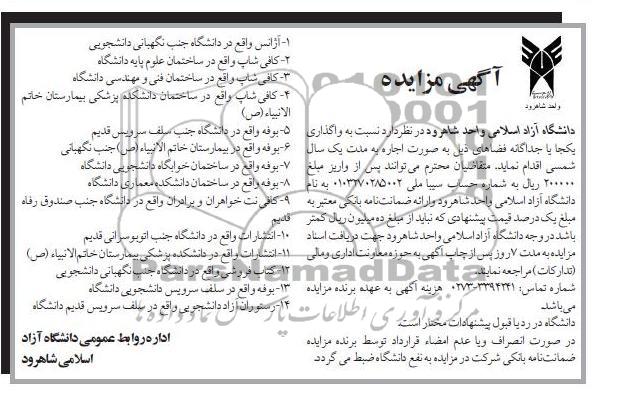 واحد شاهرود
آگهی مزایده
دانشگاه آزاد اسلامی واحد شاهرود در نظر دارد نسبت به واگذاری
یکجا یا جداگانه فضاهای ذیل به صورت اجاره به مدت یک سال
شمسی اقدام نماید. متقاضیان محترم می‌توانند پس از واریز مبلغ
۲۰۰۰۰۰ ریال به شماره حساب سیبا ملی ۰۱۰۳۳۷۰۲۸۵۰۰۲ به نام
دانشگاه آزاد اسلامی واحد شاهرود و ارائه ضمانت‌نامه بانکی معتبر به
مبلغ یک درصد قیمت پیشنهادی که نباید از مبلغ ده میلیون ریال کمتر
باشد در وجه دانشگاه آزاد اسلامی واحد شاهرود جهت دریافت اسناد
مزایده به مدت ۷ روز پس از چاپ آگهی به حوزه معاونت اداری و مالی
(تدارکات) مراجعه نمایند.
شماره تماس: ۳۳۹۴۲۴۱-۰۲۷۳ هزینه آگهی به عهده برنده مزایده
می‌باشد.
دانشگاه در رد یا قبول پیشنهادات مختار است.
در صورت انصراف ویا عدم امضاء قرارداد توسط برنده مزایده
ضمانت‌نامه بانکی شرکت در مزایده به نفع دانشگاه ضبط می گردد.
۱-آژانس واقع در دانشگاه جنب نگهبانی دانشجویی
۲-کافی‌شاپ واقع در ساختمان علوم پایه دانشگاه
۳-کافی‌شاپ واقع در ساختمان فنی و مهندسی دانشگاه
۴-کافی‌شاپ واقع در ساختمان دانشکده پزشکی بیمارستان خاتم
الانبیاء(ص)
۵-بوفه واقع در دانشگاه جنب سلف سرویس قدیم
۶-بوفه واقع در بیمارستان خاتم الانبیاء(ص) جنب نگهبانی
۷-بوفه واقع در ساختمان خوابگاه دانشجویی دانشگاه
۸-بوفه واقع در ساختمان دانشکده معماری دانشگاه
۹-کافی نت خواهران و برادران واقع در دانشگاه جنب صندوق رفاه
قدیم
۱۰-انتشارات واقع در دانشگاه جنب اتوبوسرانی قدیم
۱۱-انتشارات واقع در دانشکده پزشکی بیمارستان خاتم‌الانبیاء (ص)
۱۲-کتاب فروشی واقع در دانشگاه جنب نگهبانی دانشجویی
۱۳-بوفه واقع در سلف سرویس دانشجویی دانشگاه
۱۴-رستوران آزاد دانشجویی واقع در سلف سرویس قدیم دانشگاه
اداره روابط عمومی دانشگاه آزاد
اسلامی شاهرود
ParsNamadData
مرکز فرآوری اطلاعات پارس نماد داده ها